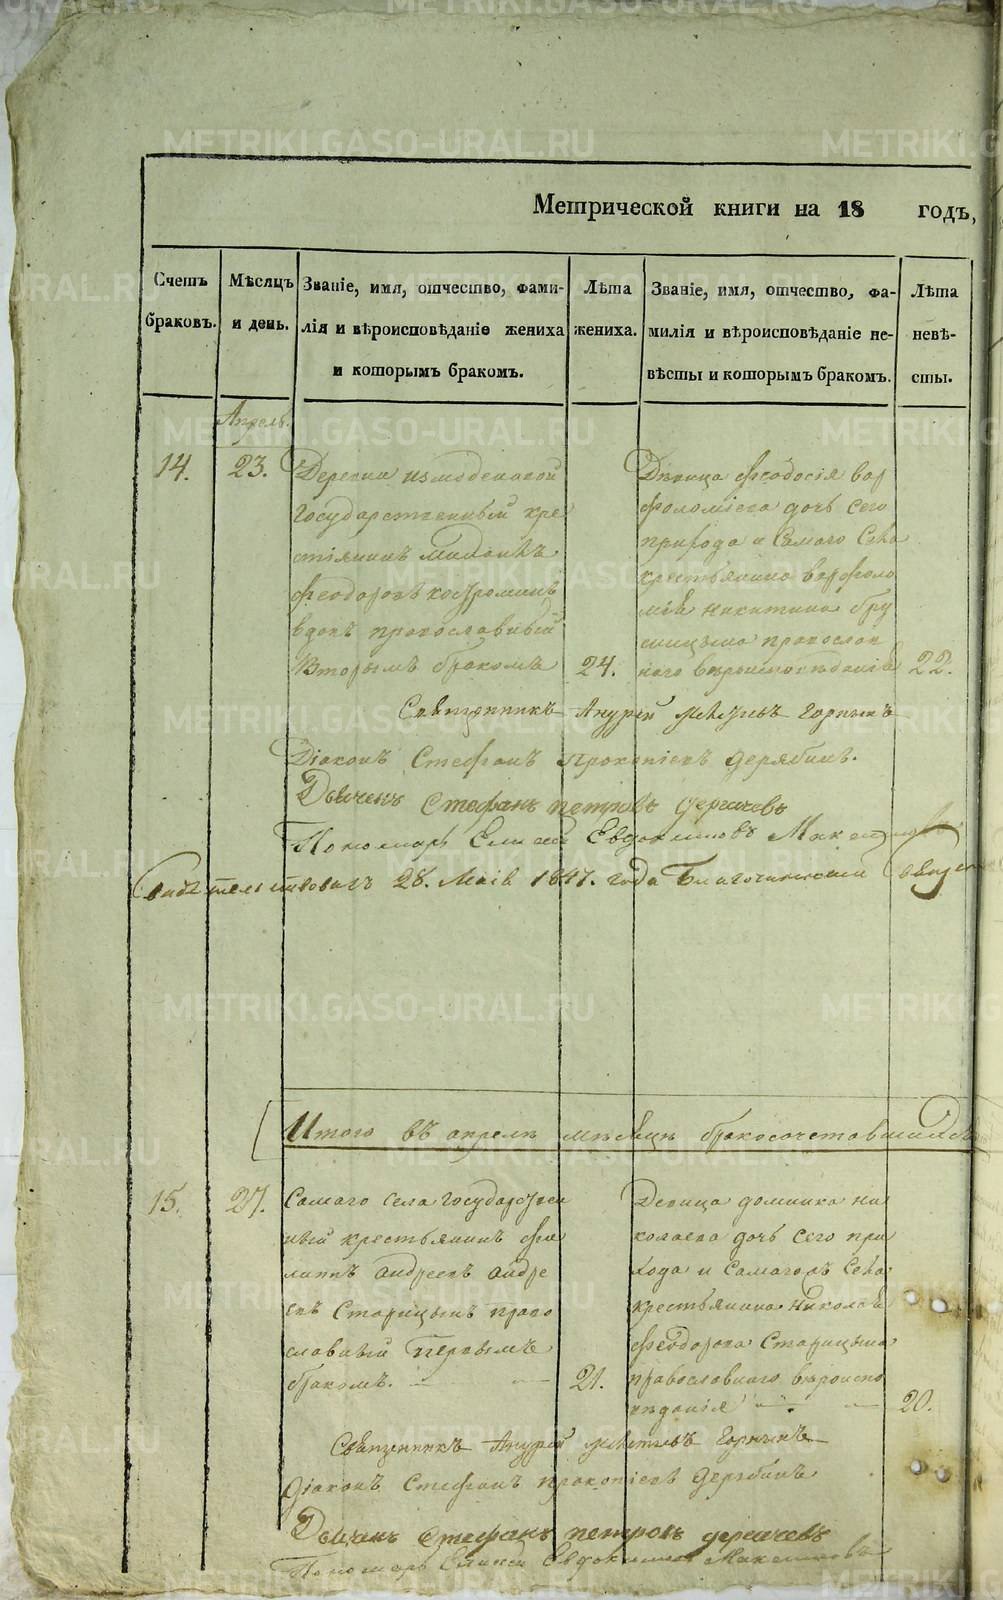 Метрической книги на 18 годъ,
Счетъ браковъ.
Мѣсяцъ и день.
Званіе, имя, отчество, фами-
лія и вѣроисповѣданіе жениха
и которымъ бракомъ.
Лѣта жениха.
Званіе, имя, отчество, фа-
милія и вѣроисповѣданіе не-
вѣсты и которымъ бракомъ.
Лѣта
невѣ-
сты.
Апрель.
14. 23.
Деревни
Государственный кре
стіянинъ
феодоровъ костроминъ
вдовъ православный
Вторымъ бракомъ
24.
Девица феодосія вар
фоломіева дочь сего
прихода и Самаго Села
крестьянина варфоло
мѣя никитина бру
сницына православ
наго вѣроисповѣданія
22.
Священникъ Андрей Горныхъ
Діаконъ Стефанъ Прокопіевъ дерябинъ.
Дьячекъ Стефанъ петровъ дергачевъ
Пономарь Елисей Евдокимовъ
Свидѣтельствовалъ 28. Маія 1847. года Благочинный
Итого въ апрелѣ мѣсяцѣ бракосочетавшихся
15. 27.
Самаго села государствен
ный крестьянинъ фи
липъ андреевъ андре
евъ Старицынъ право
славный первымъ
бракомъ. — „ —
21.
Девица домника ни
колаева дочь сего при
хода и Самаголъ Села
крестьянина николая
феодорова Старицына
православнаго вѣроиспо
вѣданія
20.
Священникъ Андрей Горныхъ
Діаконъ Стефанъ прокопіевъ дерябинъ
Дьячекъ Стефанъ петровъ дергачевъ
Пономарь Елисей Евдокимовъ
METRIKI.GASO-URAL.RU